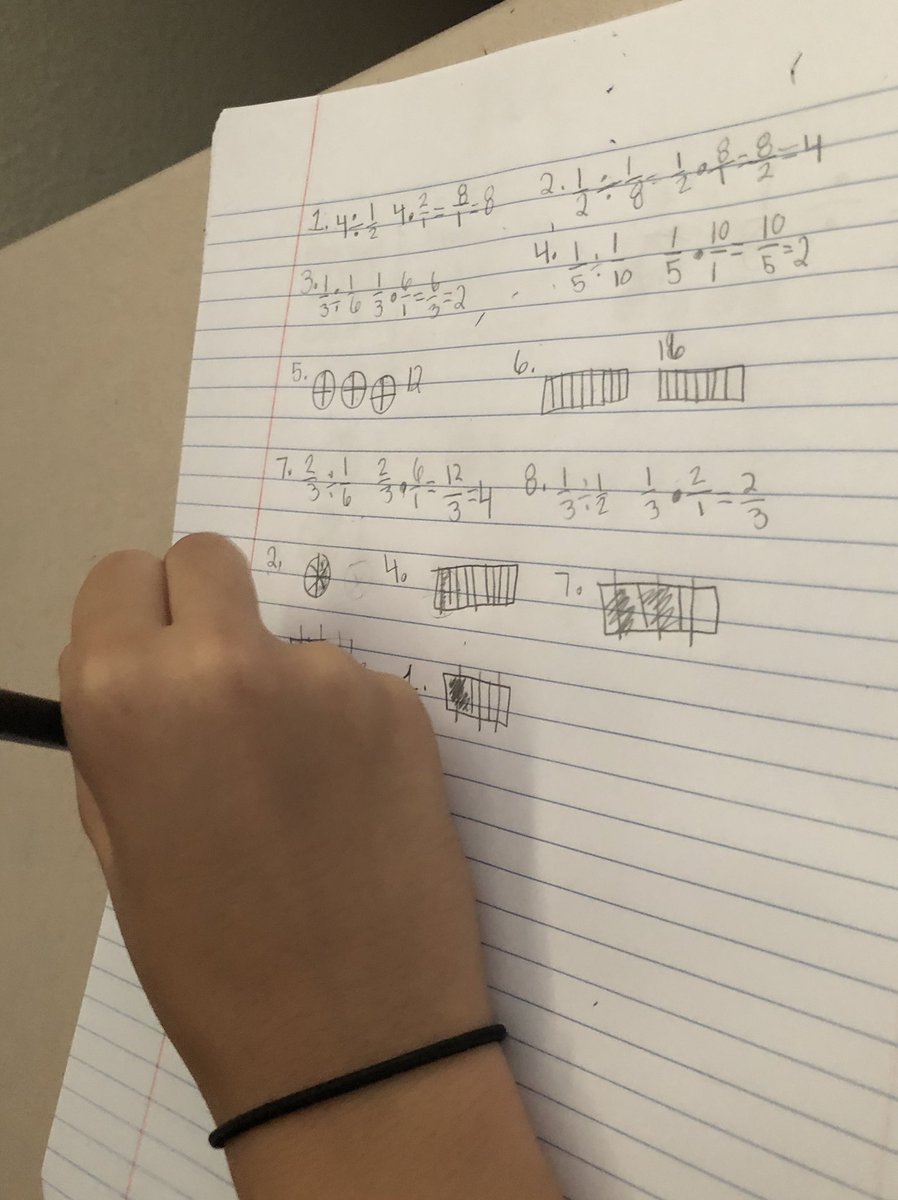 1. 4 ÷ 1/2 4 • 2/1 = 8/1 = 8 2. 1/2 ÷ 1/8 = 1/2 • 8/1 = 8/2 = 4
3. 1/3 ÷ 1/6 1/3 • 6/1 = 6/3 = 2 4. 1/5 ÷ 1/10 1/5 • 10/1 = 10/5 = 2
5. 12 6. 16
7. 2/3 ÷ 1/6 2/3 • 6/1 = 12/3 = 4 8. 1/3 ÷ 1/2 1/3 • 2/1 = 2/3
2. 4. 7.